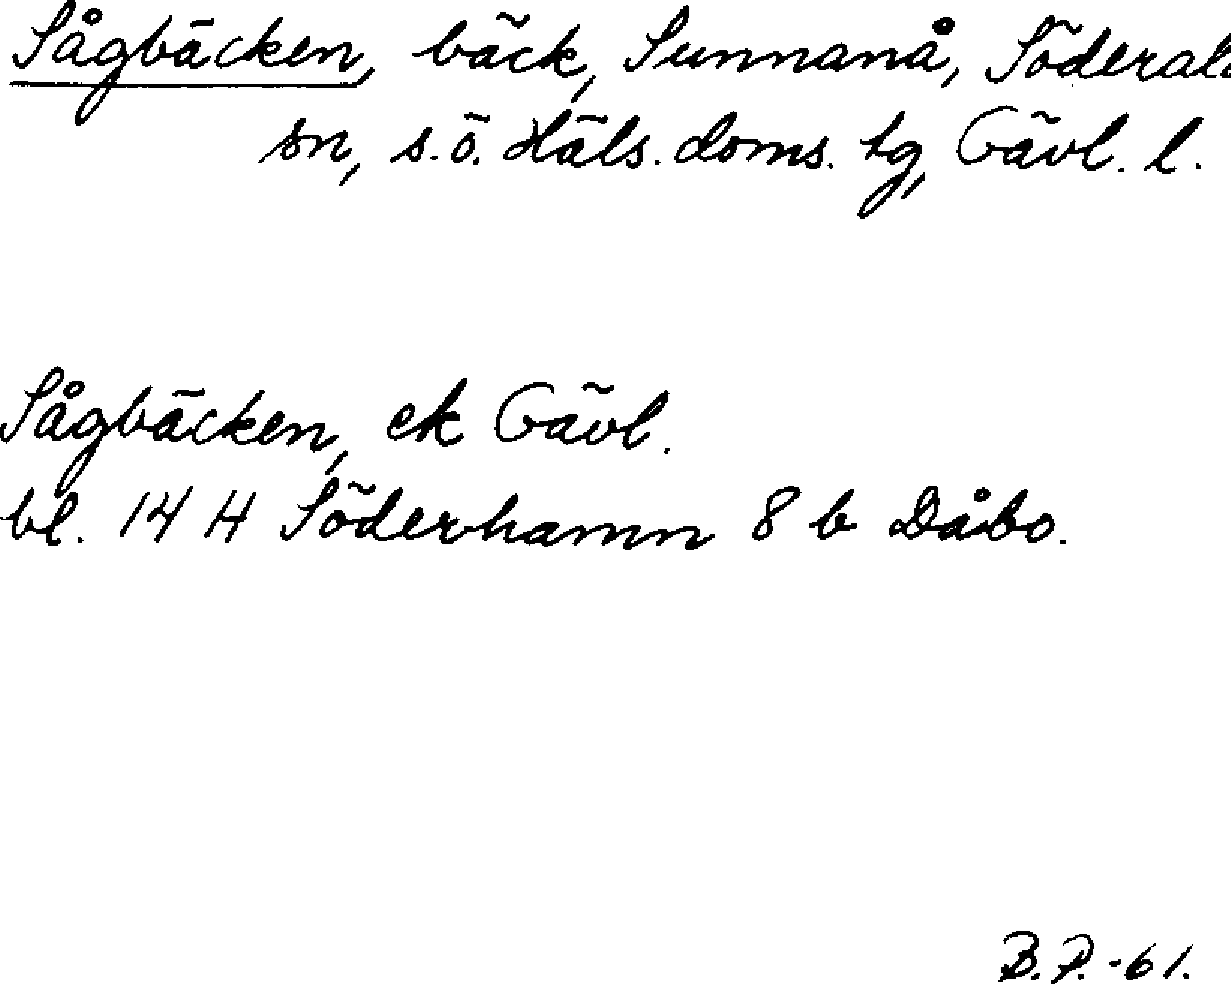 Sågbäcken, bäck, Sunnanå, Söderala
sn, s.ö. Häls. doms. tg, Gävl. l.
Sågbäcken, ek Gävl.
bl. 14 H Söderhamn 8 b Dåbo.
B.P.-61.